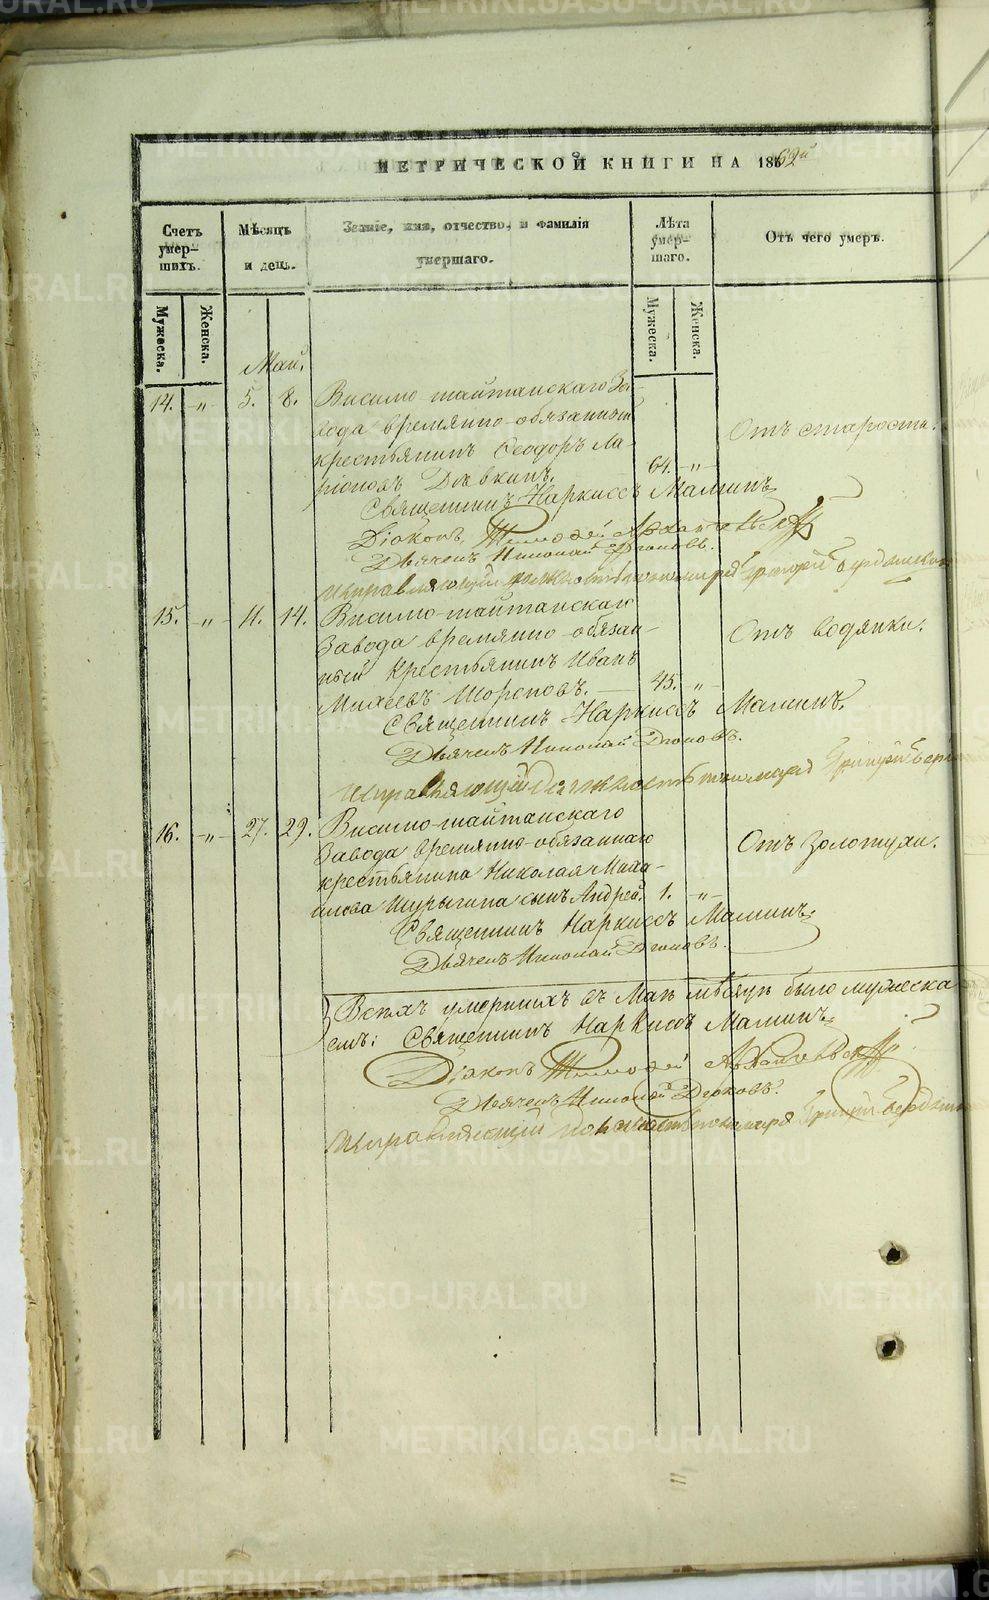 МЕТРИЧЕСКОЙ КНИГИ НА 1862й
Счетъ умер-шихъ.
Мѣсяцъ и день.
Званіе, имя, отчество, и фамилія умершаго.
Лѣта умер-шаго.
Отъ чего умеръ.
Мужеска. Женска. Мужеска. Женска.
Май.
14. „ 5. 8. Висимо-шайтанскаго За-
вода временно-обязанный
крестьянинъ Ѳеодоръ Ла-
ріоновъ 64. „ Отъ старости.
Священникъ Наркиссъ Маминъ
Діаконъ Тимофей
Дьячекъ Николай Дюковъ.
Исправляющій должность пономаря Григорій
15. „ 11. 14. Висимо-шайтанскаго
Завода временно-обязан-
ный крестьянинъ Иванъ
Михеевъ 45. „ Отъ водянки.
Священникъ Наркиссъ Маминъ.
Дьячекъ Николай Дюковъ.
Исправляющій должность пономаря Григорій
16. „ 27. 29. Висимо-шайтанскаго
Завода временно-обязаннаго
крестьянина Николая Миха-
илова Шурыгина сынъ Андрей. 1. „ Отъ золотухи.
Священникъ Наркиссъ Маминъ.
Дьячекъ Николай Дюковъ.
Всѣхъ умершихъ въ Маѣ мѣсяцѣ было мужеска
Священникъ Наркиссъ Маминъ
Діаконъ Тимофей
Дьячекъ Николай Дюковъ.
Исправляющій должность пономаря Григорій
METRIKI.GASO-URAL.RU